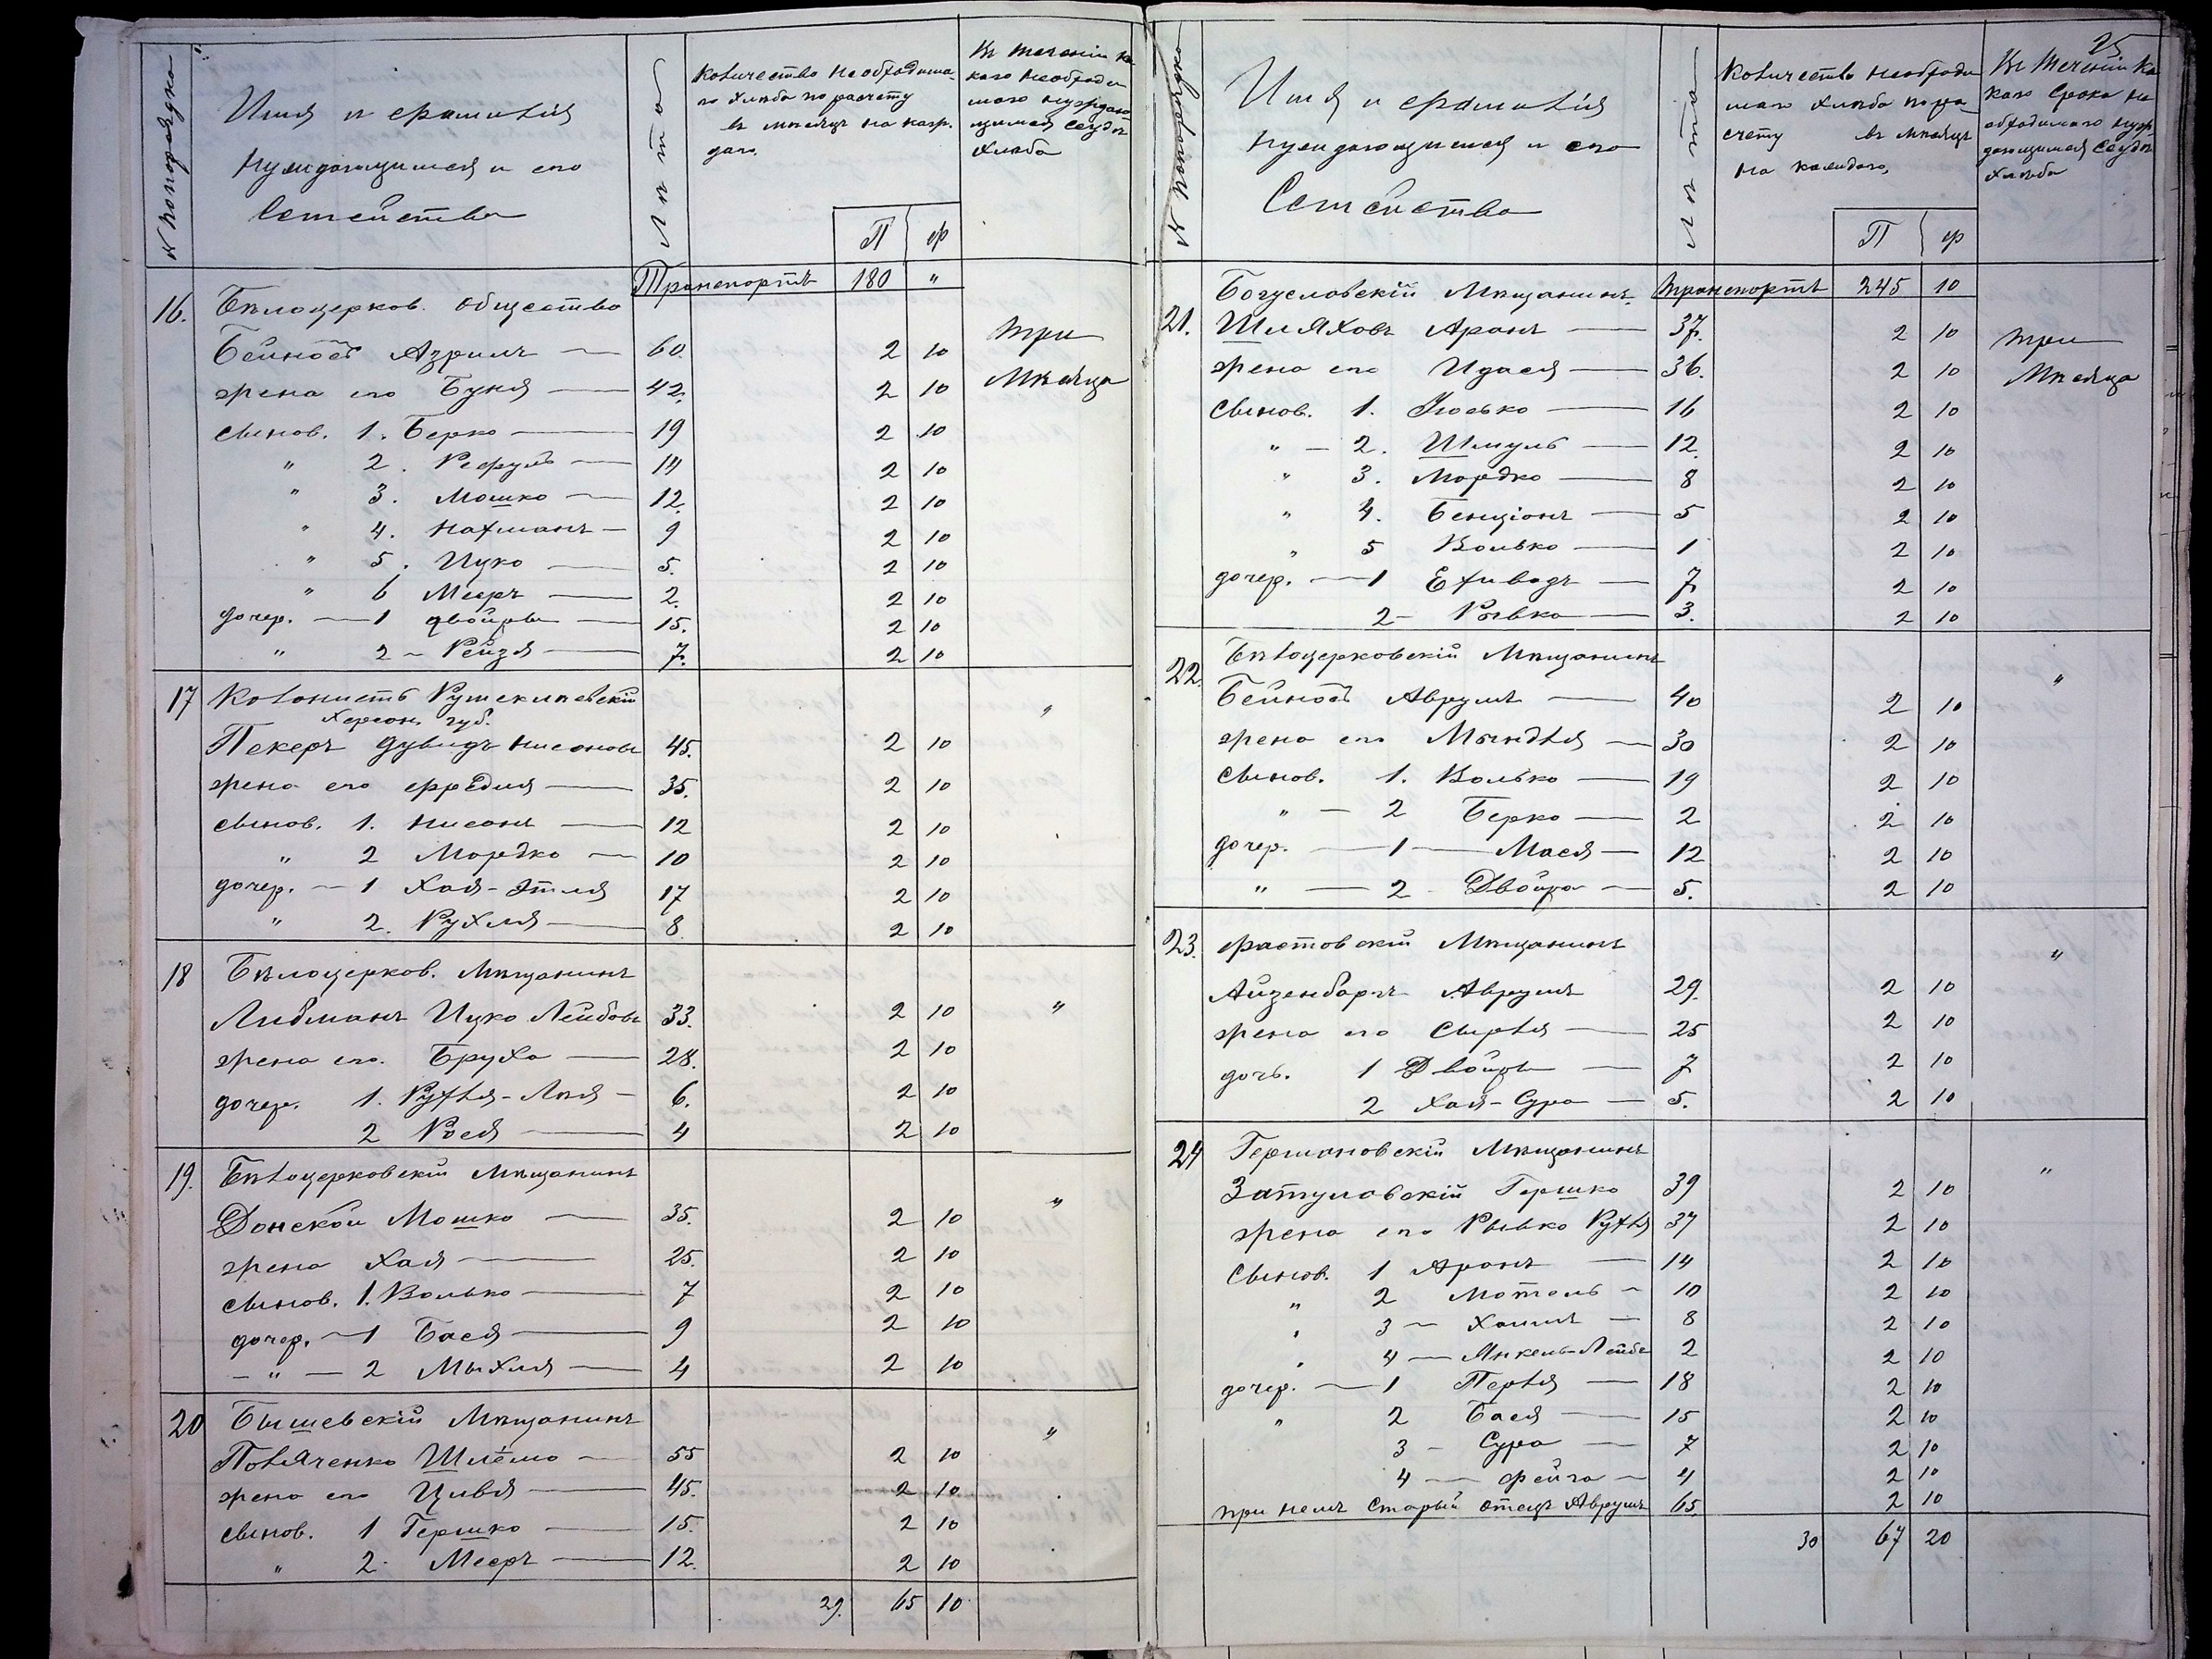 № попорядка
Имя и фамилія
нуждающимся и его
Семейства
Лѣта
Количество необходима-
го хлѣба по расчету
въ мѣсяцъ на каж-
даго.
П ф
Въ теченіи ка
каго необходи
маго нуждаю-
щимся ссудѣ
хлѣба
Транспортъ 180 "
16. Бѣлоцерков. общество
Бейносъ Азрилъ — 60. 2 10 три
жена его Буня — 42. 2 10 Мѣсяца
сынов. 1. Берко — 19 2 10
" 2. Рефуль — 14 2 10
" 3. Мошко — 12. 2 10
" 4. Нахманъ — 9 2 10
" 5. Ицко — 5. 2 10
" 6 Мееръ — 2. 2 10
дочер. — 1 Двойра — 15. 2 10
" 2 — Рейзя — 7. 2 10
17 Колонистъ
Херсон. губ. "
Пекеръ Дувидъ Нисоновъ 45. 2 10
жена его Фредмя — 35. 2 10
сынов. 1. Нисонъ — 12 2 10
" 2 Мордко — 10 2 10
дочер. — 1 Хая-Этля 17 2 10
" 2. Рухля — 8 2 10
18 Бѣлоцерков. Мѣщанинъ
Либманъ Ицко Лейбовъ 33. 2 10 "
жена его Бруха — 28. 2 10
дочер. 1. Рухля-Лея — 6. 2 10
2 Рося — 4 2 10
19. Бѣлоцерковскій Мѣщанинъ
Донской Мошко — 35. 2 10 "
жена Хая — 25. 2 10
сынов. 1. Волько — 7 2 10
дочер. — 1 Бася — 9 2 10
— " — 2 Мыхля — 4 2 10
20 Бышевскій Мѣщанинъ "
Поляченко Шлёмо — 55 2 10
жена его Цивя — 45. 2 10
сынов. 1 Гершко — 15. 2 10
" 2 Мееръ — 12. 2 10
29. 65 10
25
№ попорядка
Имя и фамилія
нуждающимся и его
Семейства
Лѣта
Количество необходи
маго хлѣба пора
счету въ мѣсяцъ
на каждаго,
П ф
Въ теченіи ка
каго срока не
обходимаго нуж-
дающимся ссудѣ
хлѣба
Богуславскій Мѣщанинъ. транспортъ 245 10
21. Шляховъ Аронъ — 37. 2 10 три
жена его Идася — 36. 2 10 Мѣсяца
сынов. 1. Іосько — 16 2 10
" — 2. Шмуль — 12. 2 10
" 3. Мордко — 8 2 10
" 4. Бенціонъ — 5 2 10
" 5 Волько — 1 2 10
дочер. — 1 Ехивадъ — 7 2 10
2 — Рывка — 3. 2 10
22. Бѣлоцерковскій Мѣщанинъ "
Бейносъ Аврумъ — 40 2 10
жена его Мындля — 30 2 10
сынов. 1. Волько — 19 2 10
" — 2 Берко — 2 2 10
дочер. — 1 — Мася — 12 2 10
" — 2 Двойра — 5. 2 10
23. Фастовскій Мѣщанинъ "
Айзенбаргъ Аврумъ 29. 2 10
жена его Сырля — 25 2 10
дочь. 1 Двойра — 7 2 10
2 Хая-Сура — 5. 2 10
24 Германовскій Мѣщанинъ "
Затуловскій Гершко 39 2 10
жена его Рывка Рухля 37 2 10
сынов. 1 Аронъ — 14 2 10
" 2 Мотель — 10 2 10
" 3 — Хаимъ — 8 2 10
" 4 — Янкель-Лейбе 2 2 10
дочер. — 1 Перля — 18 2 10
" 2 Бася — 15 2 10
3 — Сура — 7 2 10
4 — Фейга — 4 2 10
при немъ старый отецъ Аврумъ 65. 2 10
30 67 20